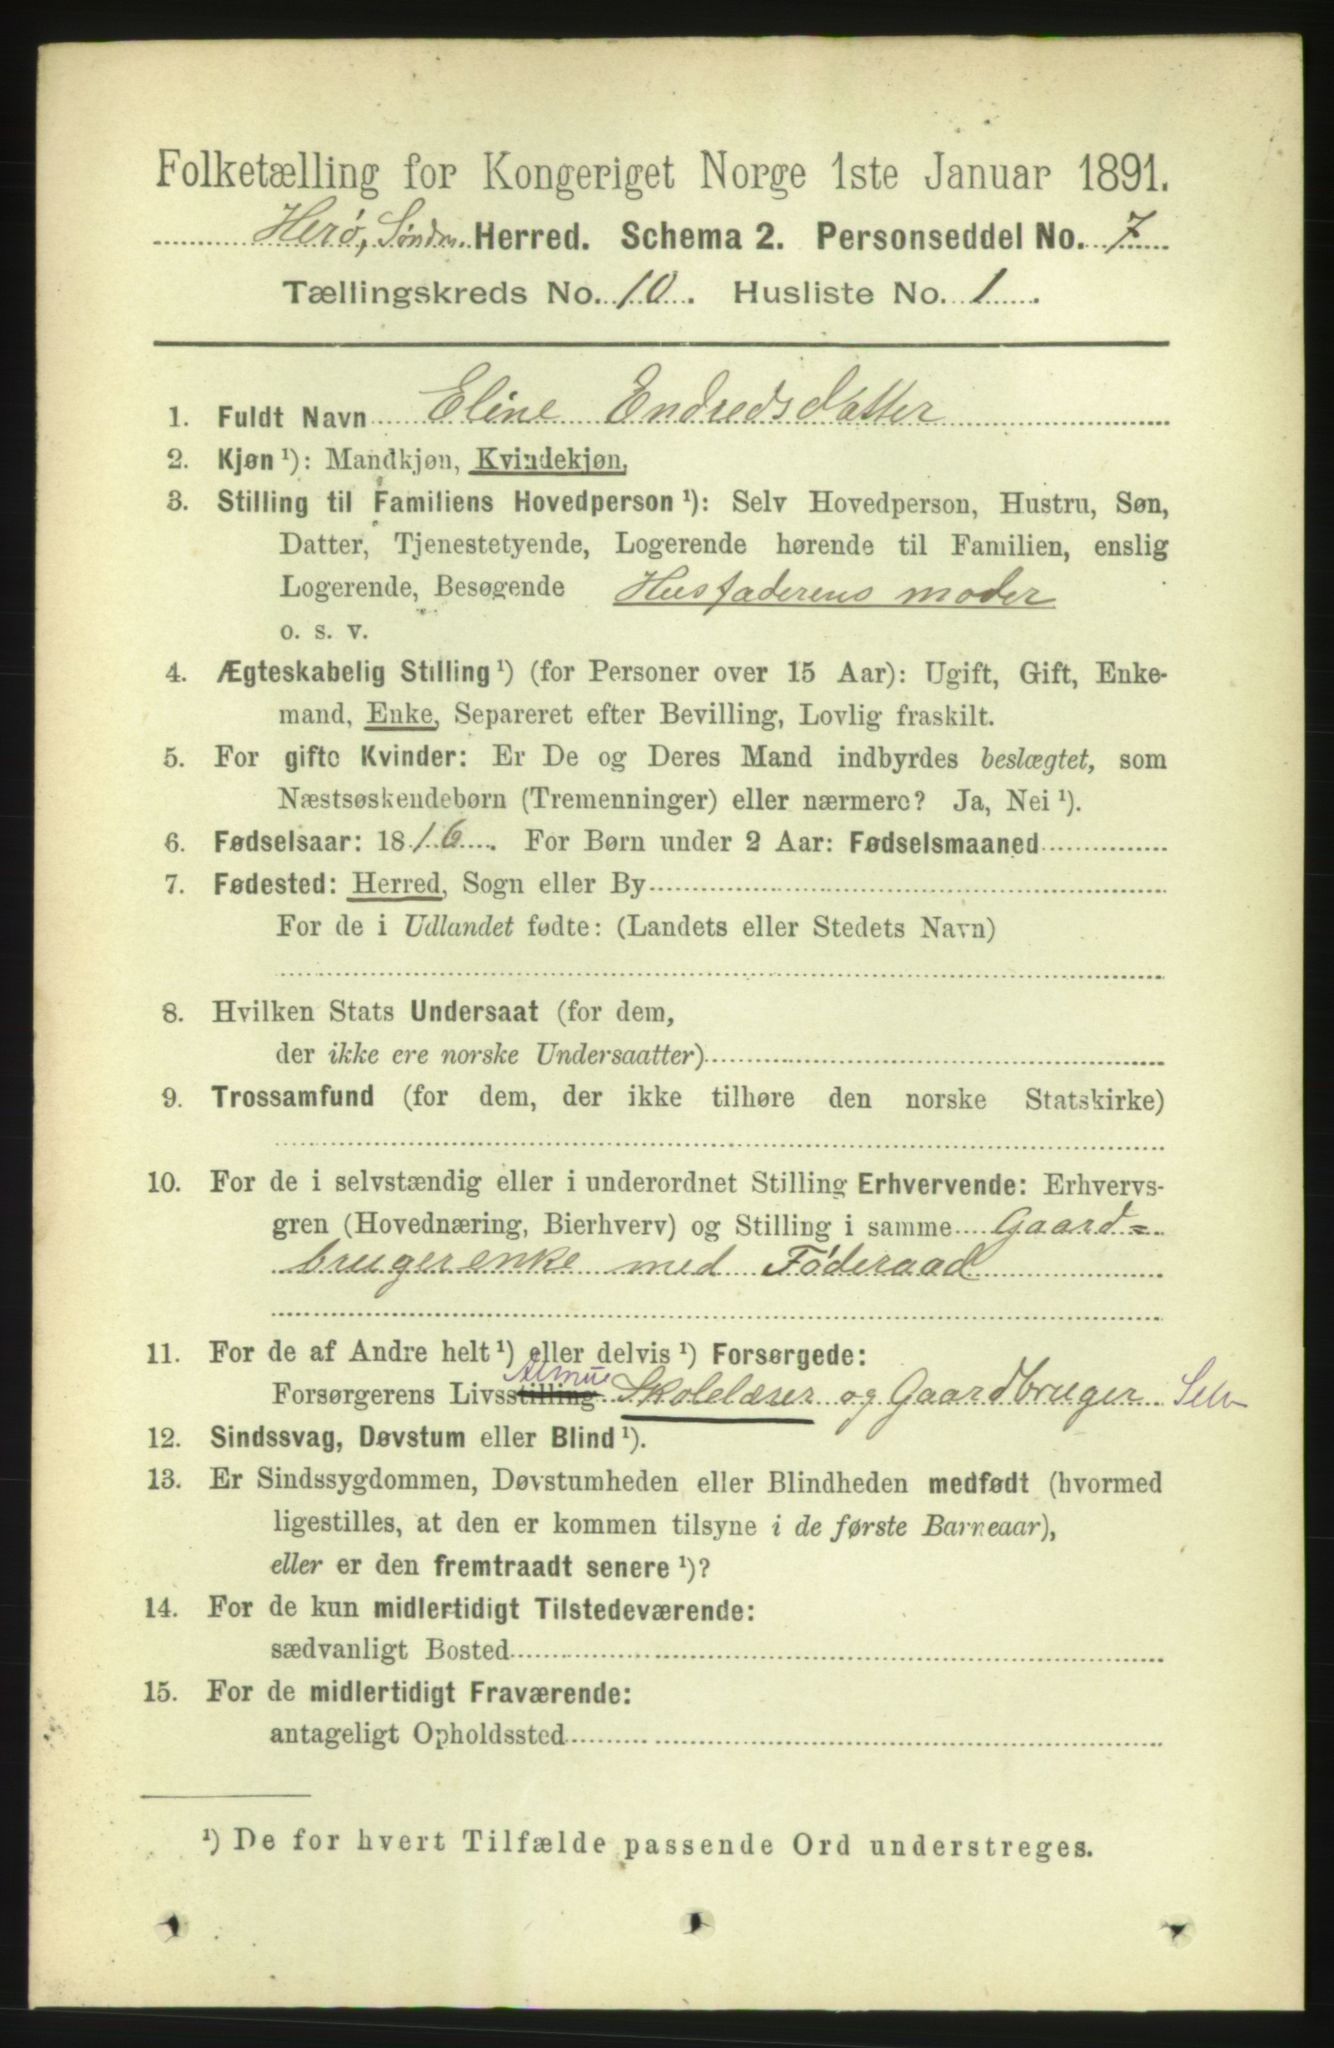 Folketælling for Kongeriget Norge 1ste Januar 1891.
Herø, Søndm. Herred. Schema 2. Personseddel No. 7
Tællingskreds No. 10. Husliste No. 1.
1. Fuldt Navn Eline Endredsdatter
2. Kjøn ¹): Mandkjøn, Kvindekjøn,
3. Stilling til Familiens Hovedperson ¹): Selv Hovedperson, Hustru, Søn,
Datter, Tjenestetyende, Logerende hørende til Familien, enslig
Logerende, Besøgende Husfaderens moder
o. s. v.
4. Ægteskabelig Stilling ¹) (for Personer over 15 Aar): Ugift, Gift, Enke-
mand, Enke, Separeret efter Bevilling, Lovlig fraskilt.
5. For gifte Kvinder: Er De og Deres Mand indbyrdes beslægtet, som
Næstsøskendebørn (Tremenninger) eller nærmere? Ja, Nei ¹).
6. Fødselsaar: 1816. For Børn under 2 Aar: Fødselsmaaned
7. Fødested: Herred, Sogn eller By
For de i Udlandet fødte: (Landets eller Stedets Navn)
8. Hvilken Stats Undersaat (for dem,
der ikke ere norske Undersaatter)
9. Trossamfund (for dem, der ikke tilhøre den norske Statskirke)
10. For de i selvstændig eller i underordnet Stilling Erhvervende: Erhvervs-
gren (Hovednæring, Bierhverv) og Stilling i samme Gaard=
brugerenke med Føderaad
11. For de af Andre helt ¹) eller delvis ¹) Forsørgede:
Almue
Forsørgerens Livsstilling Skolelærer og Gaardbruger Selv
12. Sindssvag, Døvstum eller Blind ¹).
13. Er Sindssygdommen, Døvstumheden eller Blindheden medfødt (hvormed
ligestilles, at den er kommen tilsyne i de første Barneaar),
eller er den fremtraadt senere ¹)?
14. For de kun midlertidigt Tilstedeværende:
sædvanligt Bosted
15. For de midlertidigt Fraværende:
antageligt Opholdssted
¹) De for hvert Tilfælde passende Ord understreges.